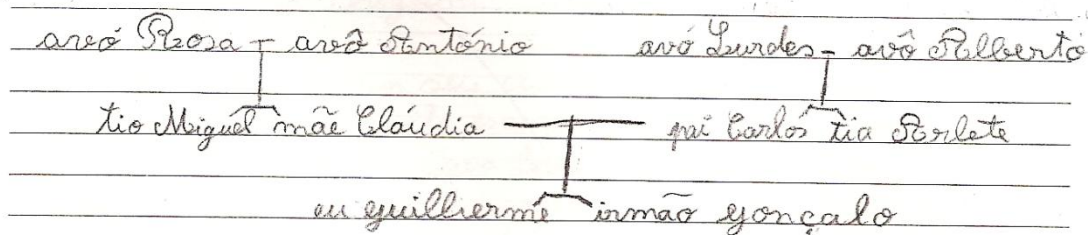 avó Rosa - avô António avó Lurdes - avô Alberto
tio Miguel mãe Cláudia pai Carlos tia Arlete
eu guilherme irmão gonçalo